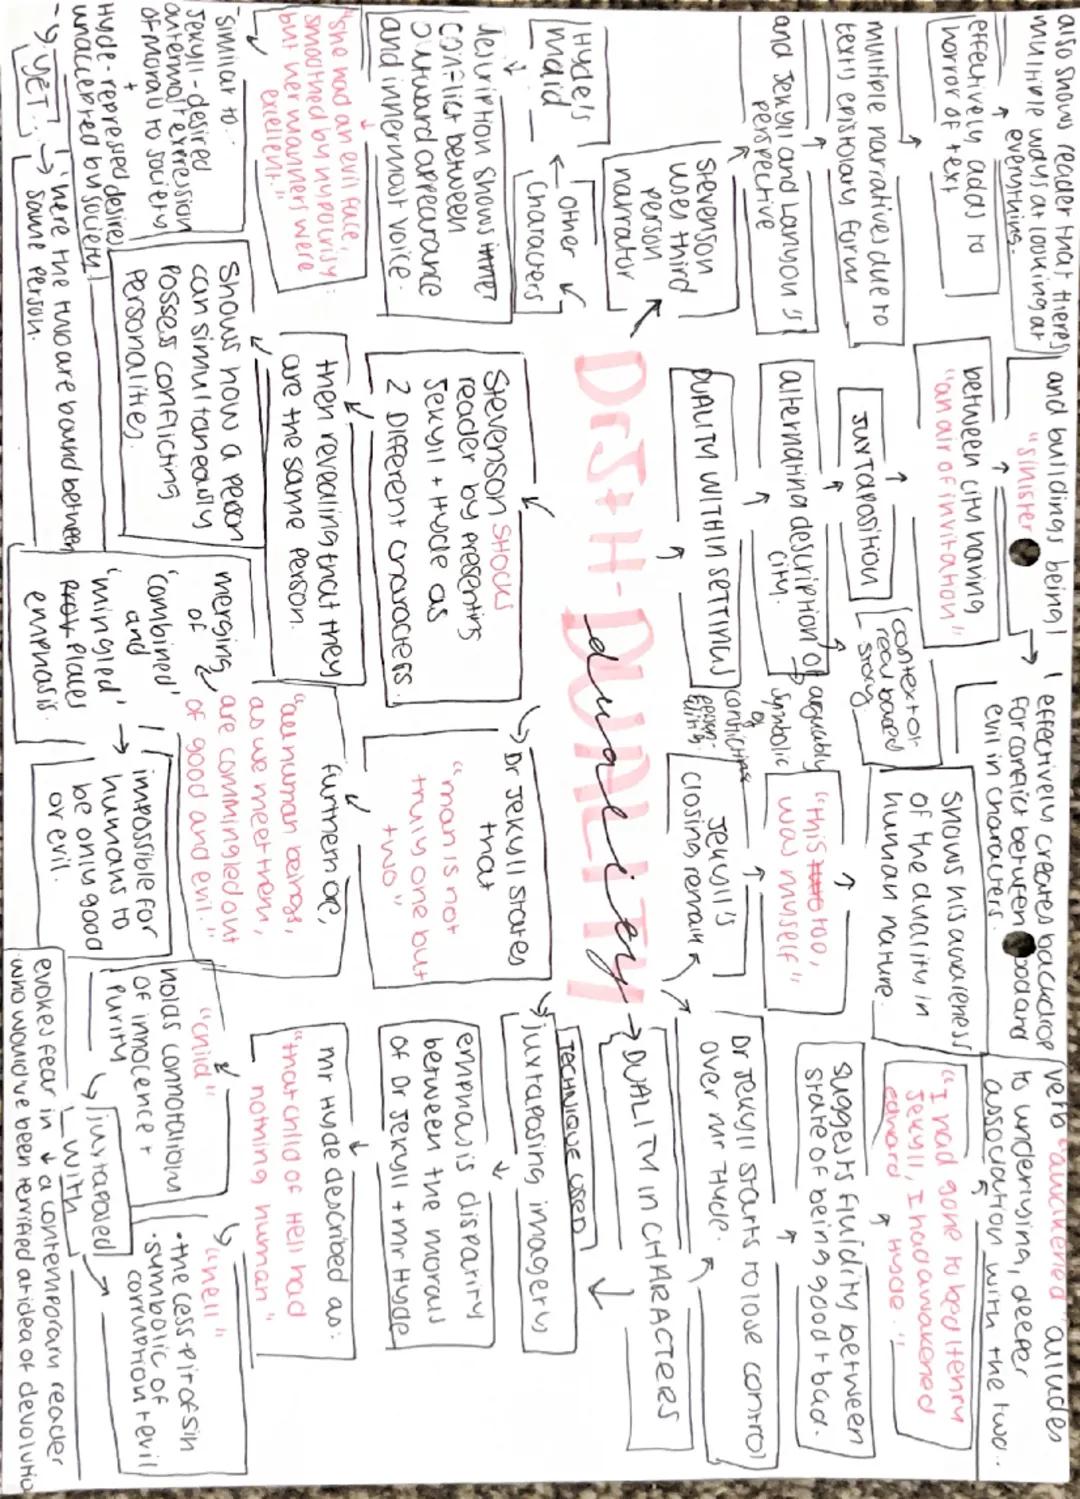 Dr J + H - DUALITY
duality
→ DUALITY IN CHARACTERS
TECHNIQUE USED
juxtaposing imagery
emphasis disparity
between the morals
of Dr Jekyll + Mr Hyde
Mr Hyde described as:
"that child of Hell had
nothing human"
"child"
holds connotations
of innocence +
purity
juxtaposed
with
"hell"
• the cess-pit of sin
• symbolic of
corruption + evil
evokes fear in a contemporary reader
who would've been terrified at idea of devolutio
Dr Jekyll starts to lose control
over Mr Hyde.
suggests fluidity between
state of being good + bad.
"I had gone to bed Henry
Jekyll, I had awakened
Edward Hyde."
verb "awakened" alludes
to underlying, deeper
association with the two..
Jekyll's
closing remark
"this too,
was myself"
shows his awareness
of the duality in
human nature.
Dr Jekyll states
that
"man is not
truly one but
two"
furthermore,
"all human beings,
as we meet them,
are commingled out
of good and evil."
merging
of
'combined'
and
'mingled'
places
emphasis.
impossible for
humans to
be only good
or evil.
Stevenson shocks
reader by presenting
Jekyll + Hyde as
2 Different characters.
then revealing that they
are the same person.
Shows how a person
can simultaneously
posses conflicting
personalities.
DUALITY WITHIN SETTINGS
alternating description of
city.
→ arguably
symbolic
of
conflicting
JUXTAPOSITION
context of
real based
story
between city having
"an air of invitation"
and buildings being
"sinister"
effectively creates backdrop
for conflict between good and
evil in characters.
Stevenson
uses third
person
narrator
and Jekyll and Lanyon's
perspective
multiple narratives due to
texts epistolary form
effectively adds to
horror of text
also shows reader that theres
multiple ways at looking at
everything.
other
characters
Hyde's
maid
description shows inner
conflict between
outward appearance
and innermost voice.
"she had an evil face,
smoothed by hypocrisy:
but her manners were
excellent."
similar to..
Jekyll - desired
external expression
of morals to society
+
Hyde - repressed desires
unaccepted by society!
→ YET... → 'here the two are bound between
same person.